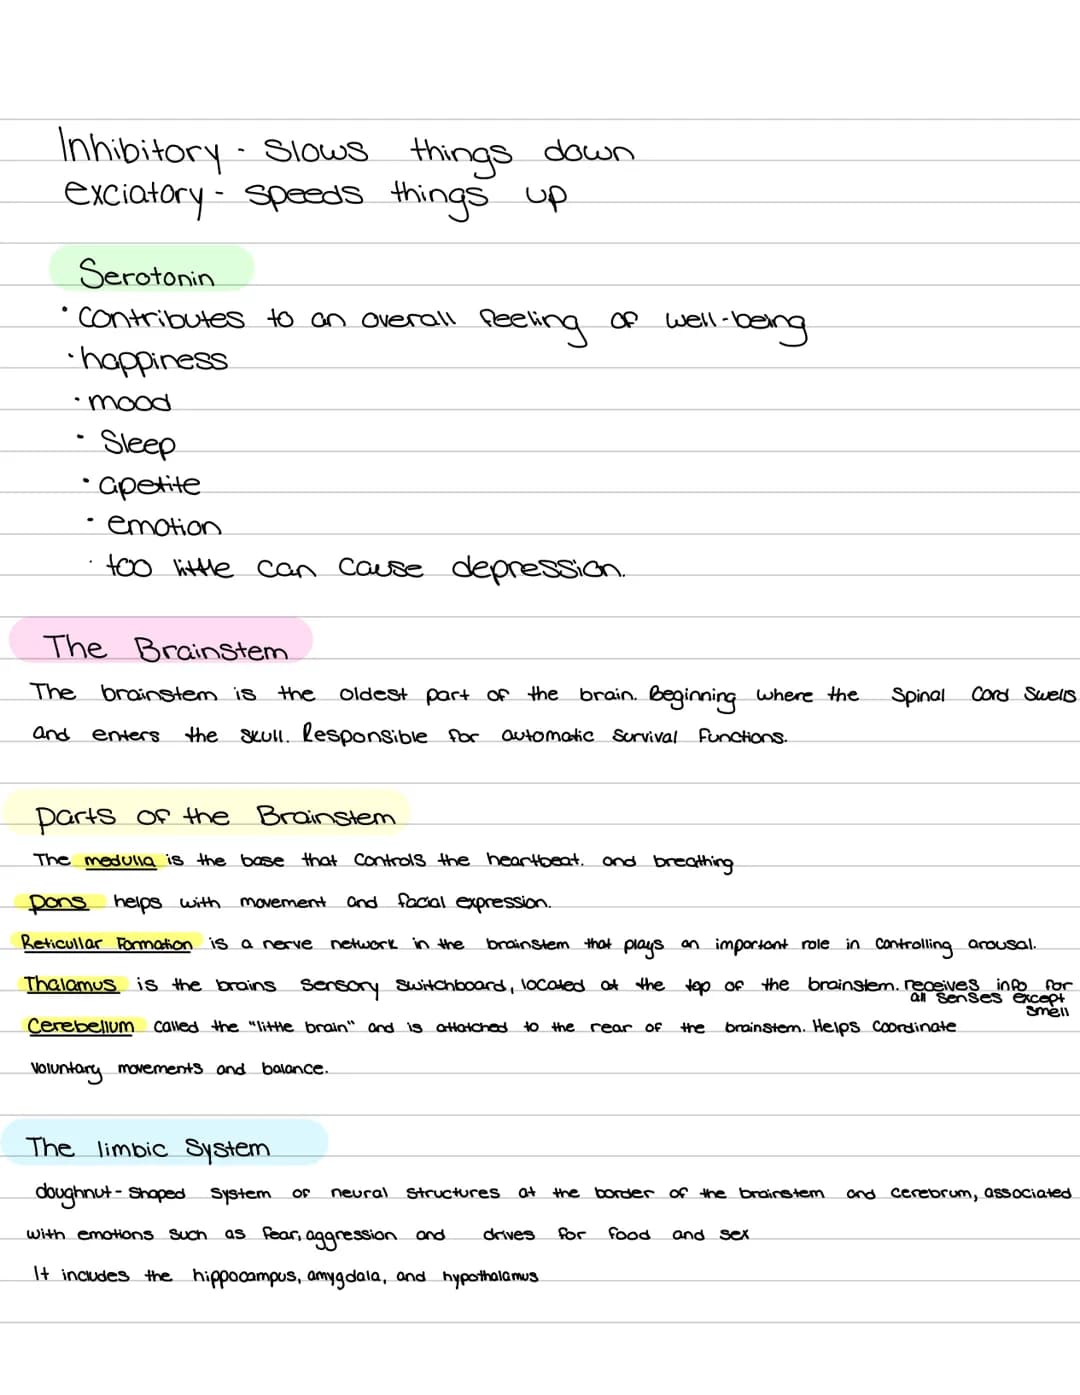 Inhibitory - Slows things down
exciatory - speeds things up
Serotonin
• contributes to an overall feeling of well-being
• happiness
• mood
• Sleep
• apetite
• emotion
• too little can cause depression.
The Brainstem
The brainstem is the oldest part of the brain. Beginning where the Spinal Cord Swells
and enters the skull. Responsible for automatic Survival Functions.
parts of the Brainstem
The medulla is the base that controls the heartbeat. and breathing
Pons helps with movement and facial expression.
Reticullar Formation is a nerve network in the brainstem that plays an important role in controlling arousal.
Thalamus is the brains sensory switchboard, located at the top of the brainstem. receives info for
all senses except
smell
Cerebellum called the "little brain" and is attatched to the rear of the brainstem. Helps coordinate
Voluntary movements and balance.
The limbic System
doughnut-Shaped System of neural structures at the border of the brainstem and cerebrum, associated
with emotions such as fear, aggression and drives for food and sex
It includes the hippocampus, amygdala, and hypothalamus